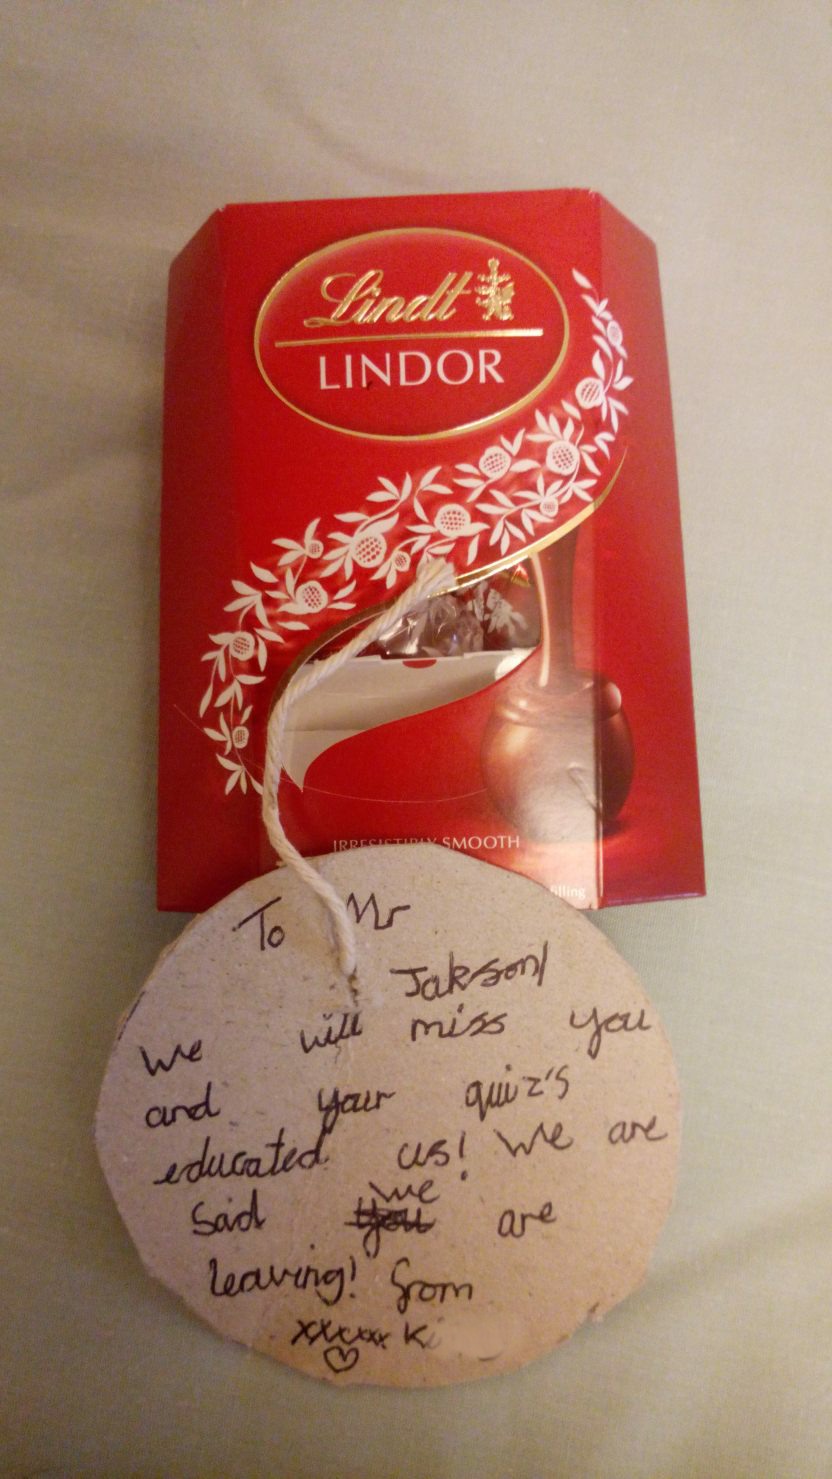 Lindt
LINDOR
IRRESISTIBLY SMOOTH
filling
To Mr
Jakson
We will miss you
and your quiz's
educated us! We are
Sad we are
leaving! from
xxxxxx Ki